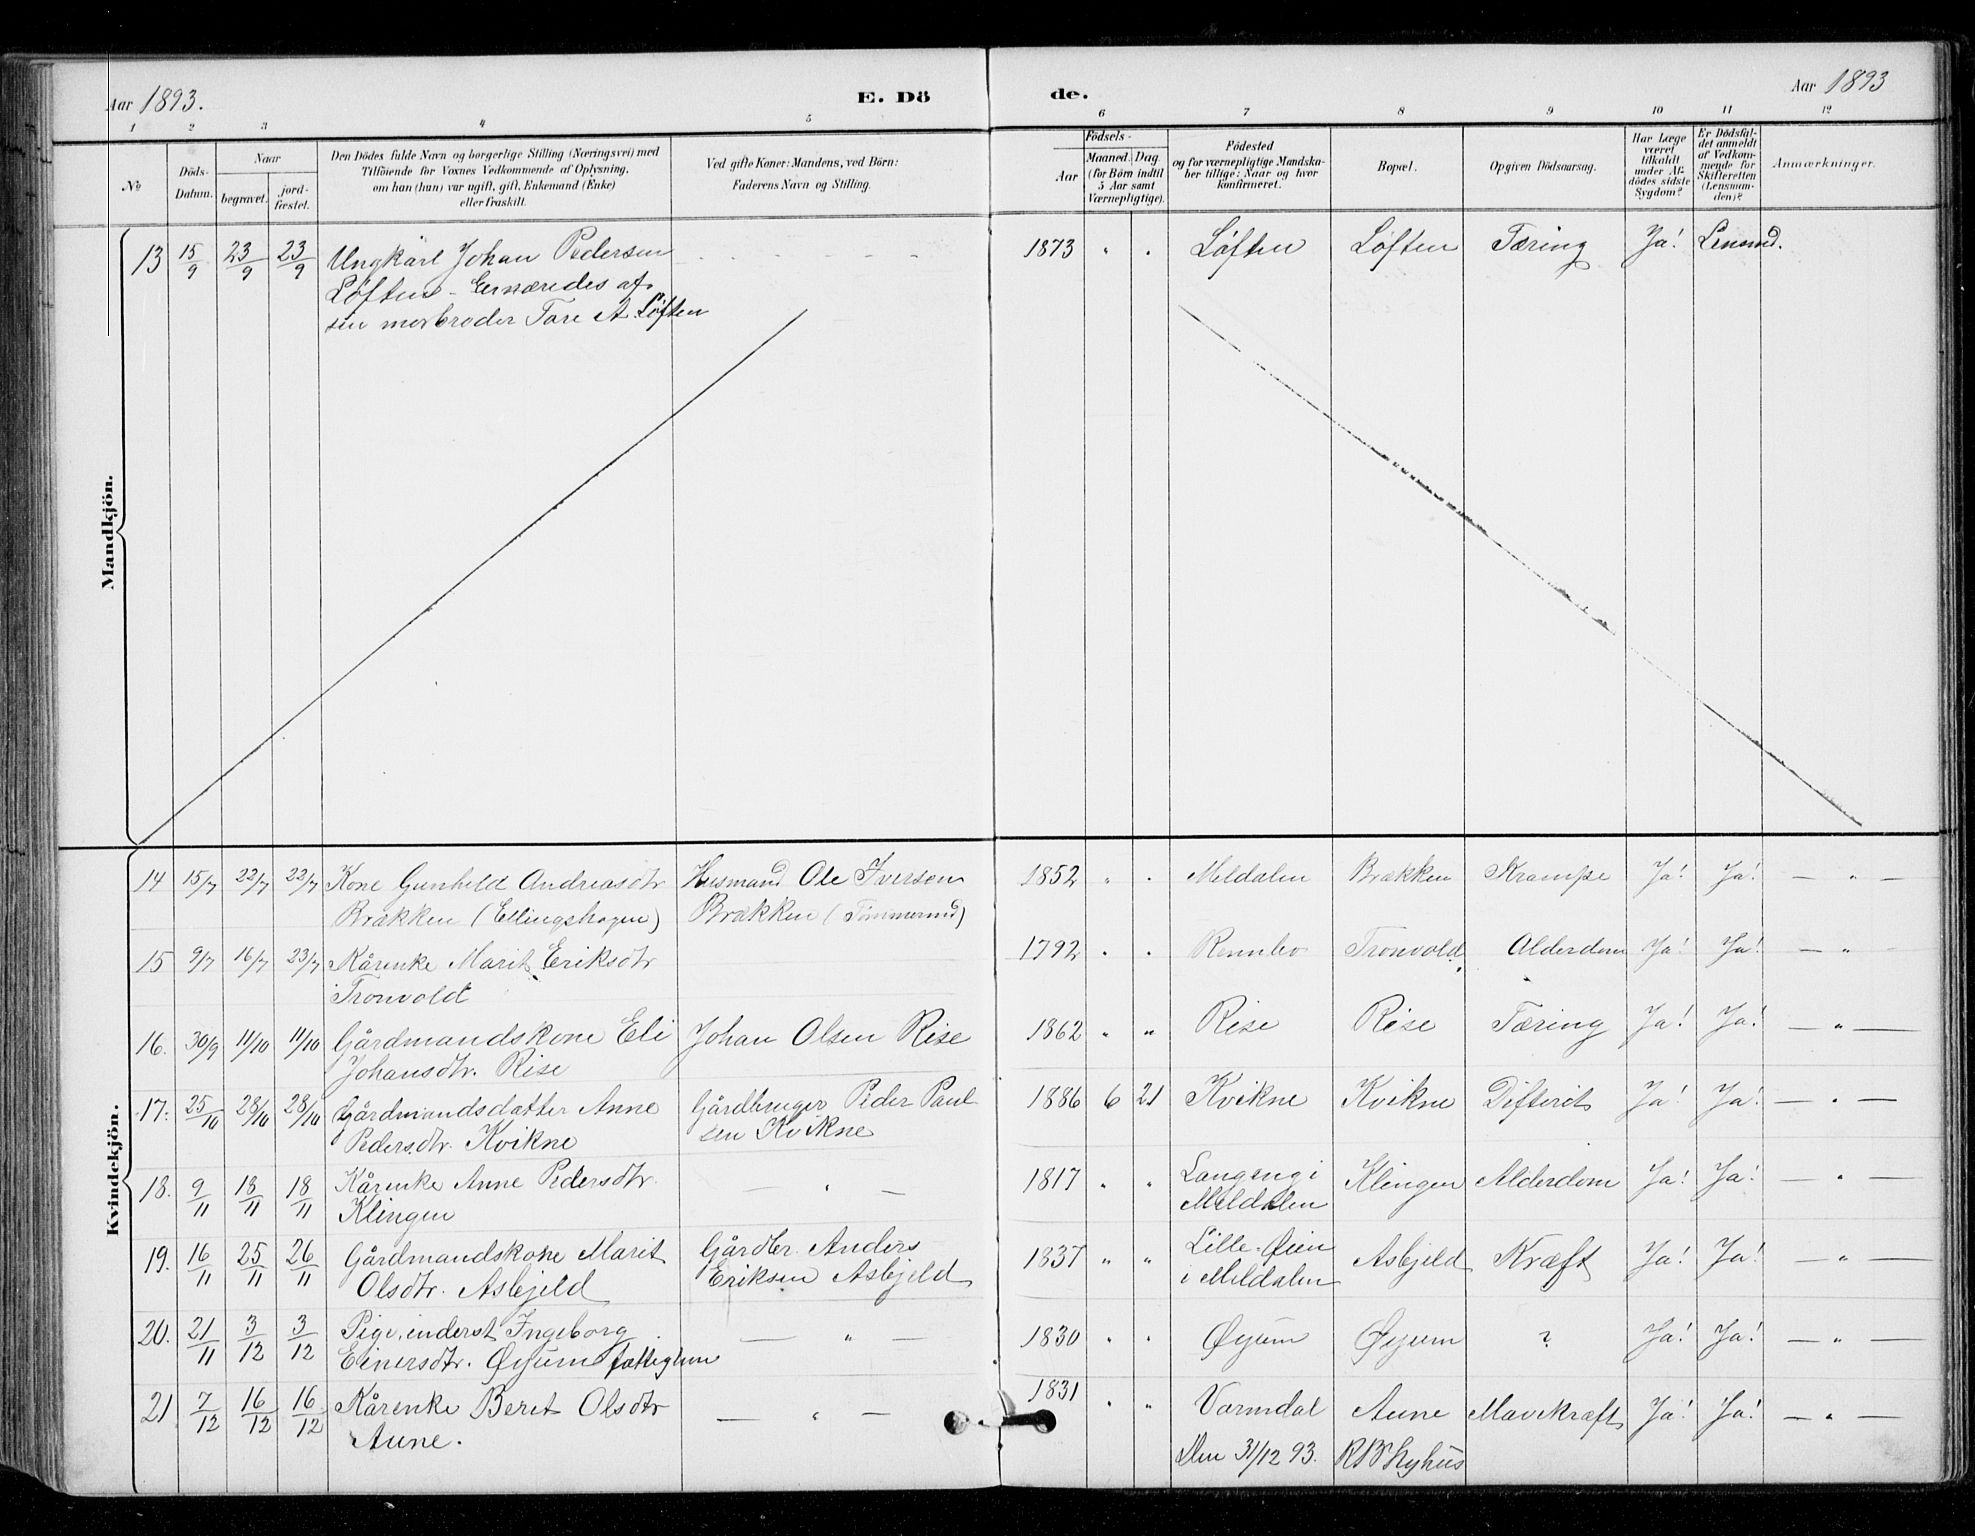 Aar 1893.
E. Dö
de.
Aar 1893
1 2 3 4 5 6 7 8 9 10 11 12
№
Döds-
Datum.
Naar
begravet.
jord-
fæstet.
Den Dödes fulde Navn og borgerlige Stilling (Næringsvei) med
Tilföiende for Voxnes Vedkommende af Oplysning,
om han (hun) var ugift, gift, Enkemand (Enke)
eller fraskilt.
Ved gifte Koner: Mandens, ved Börn:
Faderens Navn og Stilling.
Födsels-
Aar
Maaned. Dag.
(for Börn indtil
5 Aar samt
Værnepligtige).
Födested
og for værnepligtige Mandska-
ber tillige: Naar og hvor
konfirmeret.
Bopæl.
Opgiven Dödsaarsag.
Har Læge
været
tilkaldt
under Af-
dödes sidste
Sygdom?
Er Dödsfal-
det anmeldt
af Vedkom-
mende for
Skifteretten
(Lensman-
den)?
Anmærkninger.
Mandkjön.
13 15/9 23/9 23/9 Ungkarl Johan Pedersen - - - - - - 1873 " . Løften Løften Tæring Ja! Lensmd.
Løften - Ernæredes af
sin morbroder Tore A. Løften
Kvindekjön.
14 15/7 22/7 22/7 Kone Gunhild Andreasdtr Husmand Ole Iversen 1852 " . Meldalen Brækken Krampe Ja! Ja! — " —
Brækken (Ellingshagen) Brækken (Tømmermd)
15 9/7 16/7 23/7 Kårenke Marit Eriksdtr 1792 " . Rennebo Tronvold. Alderdom Ja! Ja! — "
Tronvold
16. 30/9 11/10 11/10 Gårdmandskone Eli Johan Olsen Rise 1862 " " Rise Rise Tæring Ja! Ja! — " —
Johansdtr. Rise
17. 25/10 28/10 28/10 Gårdmandsdatter Anne Gårdbruger Peder Paul 1886 6 21 Kvikne Kvikne Difterit Ja! Ja! — " —
Pedersdtr. Kvikne sen Kvikne
18. 9/11 18/11 18/11 Kårenke Anne Pedersdtr. — " — 1817 " " Langeng i Klingen Alderdom Ja! Ja! — " —
Klingen Meldalen
19. 16/11 25/11 26/11 Gårdmandskone Marit Gårdbr. Anders 1837 " " Lille-Øien Asbjeld Kræft Ja! Ja! — " —
Olsdtr. Asbjeld Eriksen Asbjeld i Meldalen
20. 21/11 3/12 3/12 Pige, underst Ingeborg — " — 1830 " . Øyum Øyum ? Ja! Ja! — " —
Einersdtr. Øyum fattiglem
21 7/12 16/12 16/12 Kårenke Beret Olsdtr — " — 1831 " " Vormdal Aune Mavekræft Ja! Ja! — " —
Aune.
Den 31/12 93. R B Nyhus